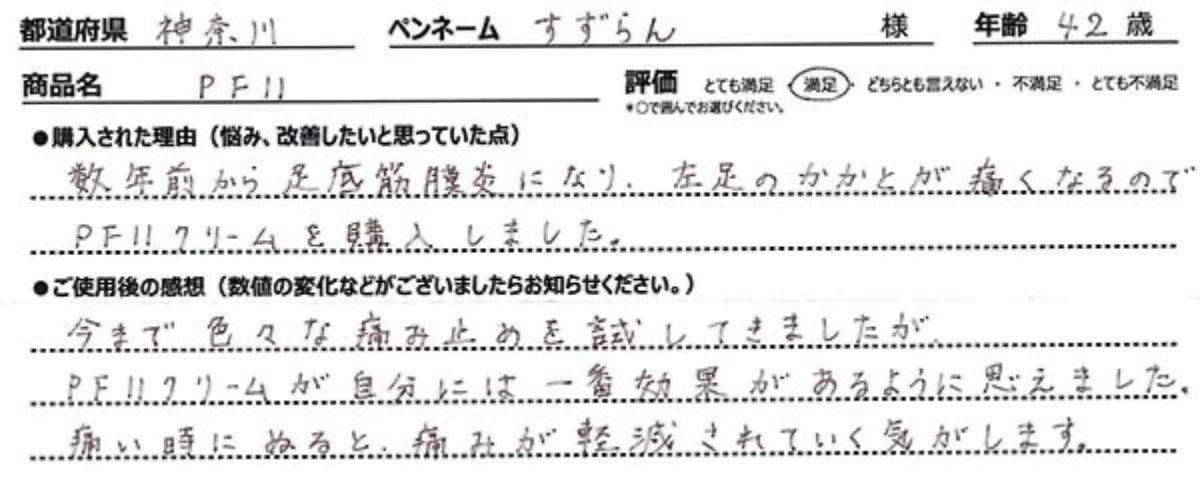 都道府県 神奈川 ペンネーム すずらん 様 年齢 42 歳
商品名 PF11 評価 とても満足 ・ 満足 ・ どちらとも言えない ・ 不満足 ・ とても不満足
*○で囲んでお選びください。
●購入された理由（悩み、改善したいと思っていた点）
数年前から足底筋膜炎になり、左足のかかとが痛くなるので
PF11クリームを購入しました。
●ご使用後の感想（数値の変化などがございましたらお知らせください。）
今まで色々な痛み止めを試してきましたが、
PF11クリームが自分には一番効果があるように思えました。
痛い時にぬると、痛みが軽減されていく気がします。